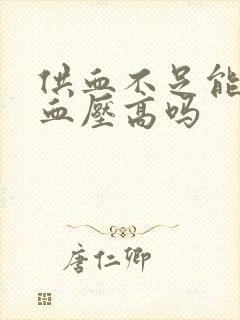 供血不足能
血壓高吗
唐仁卿